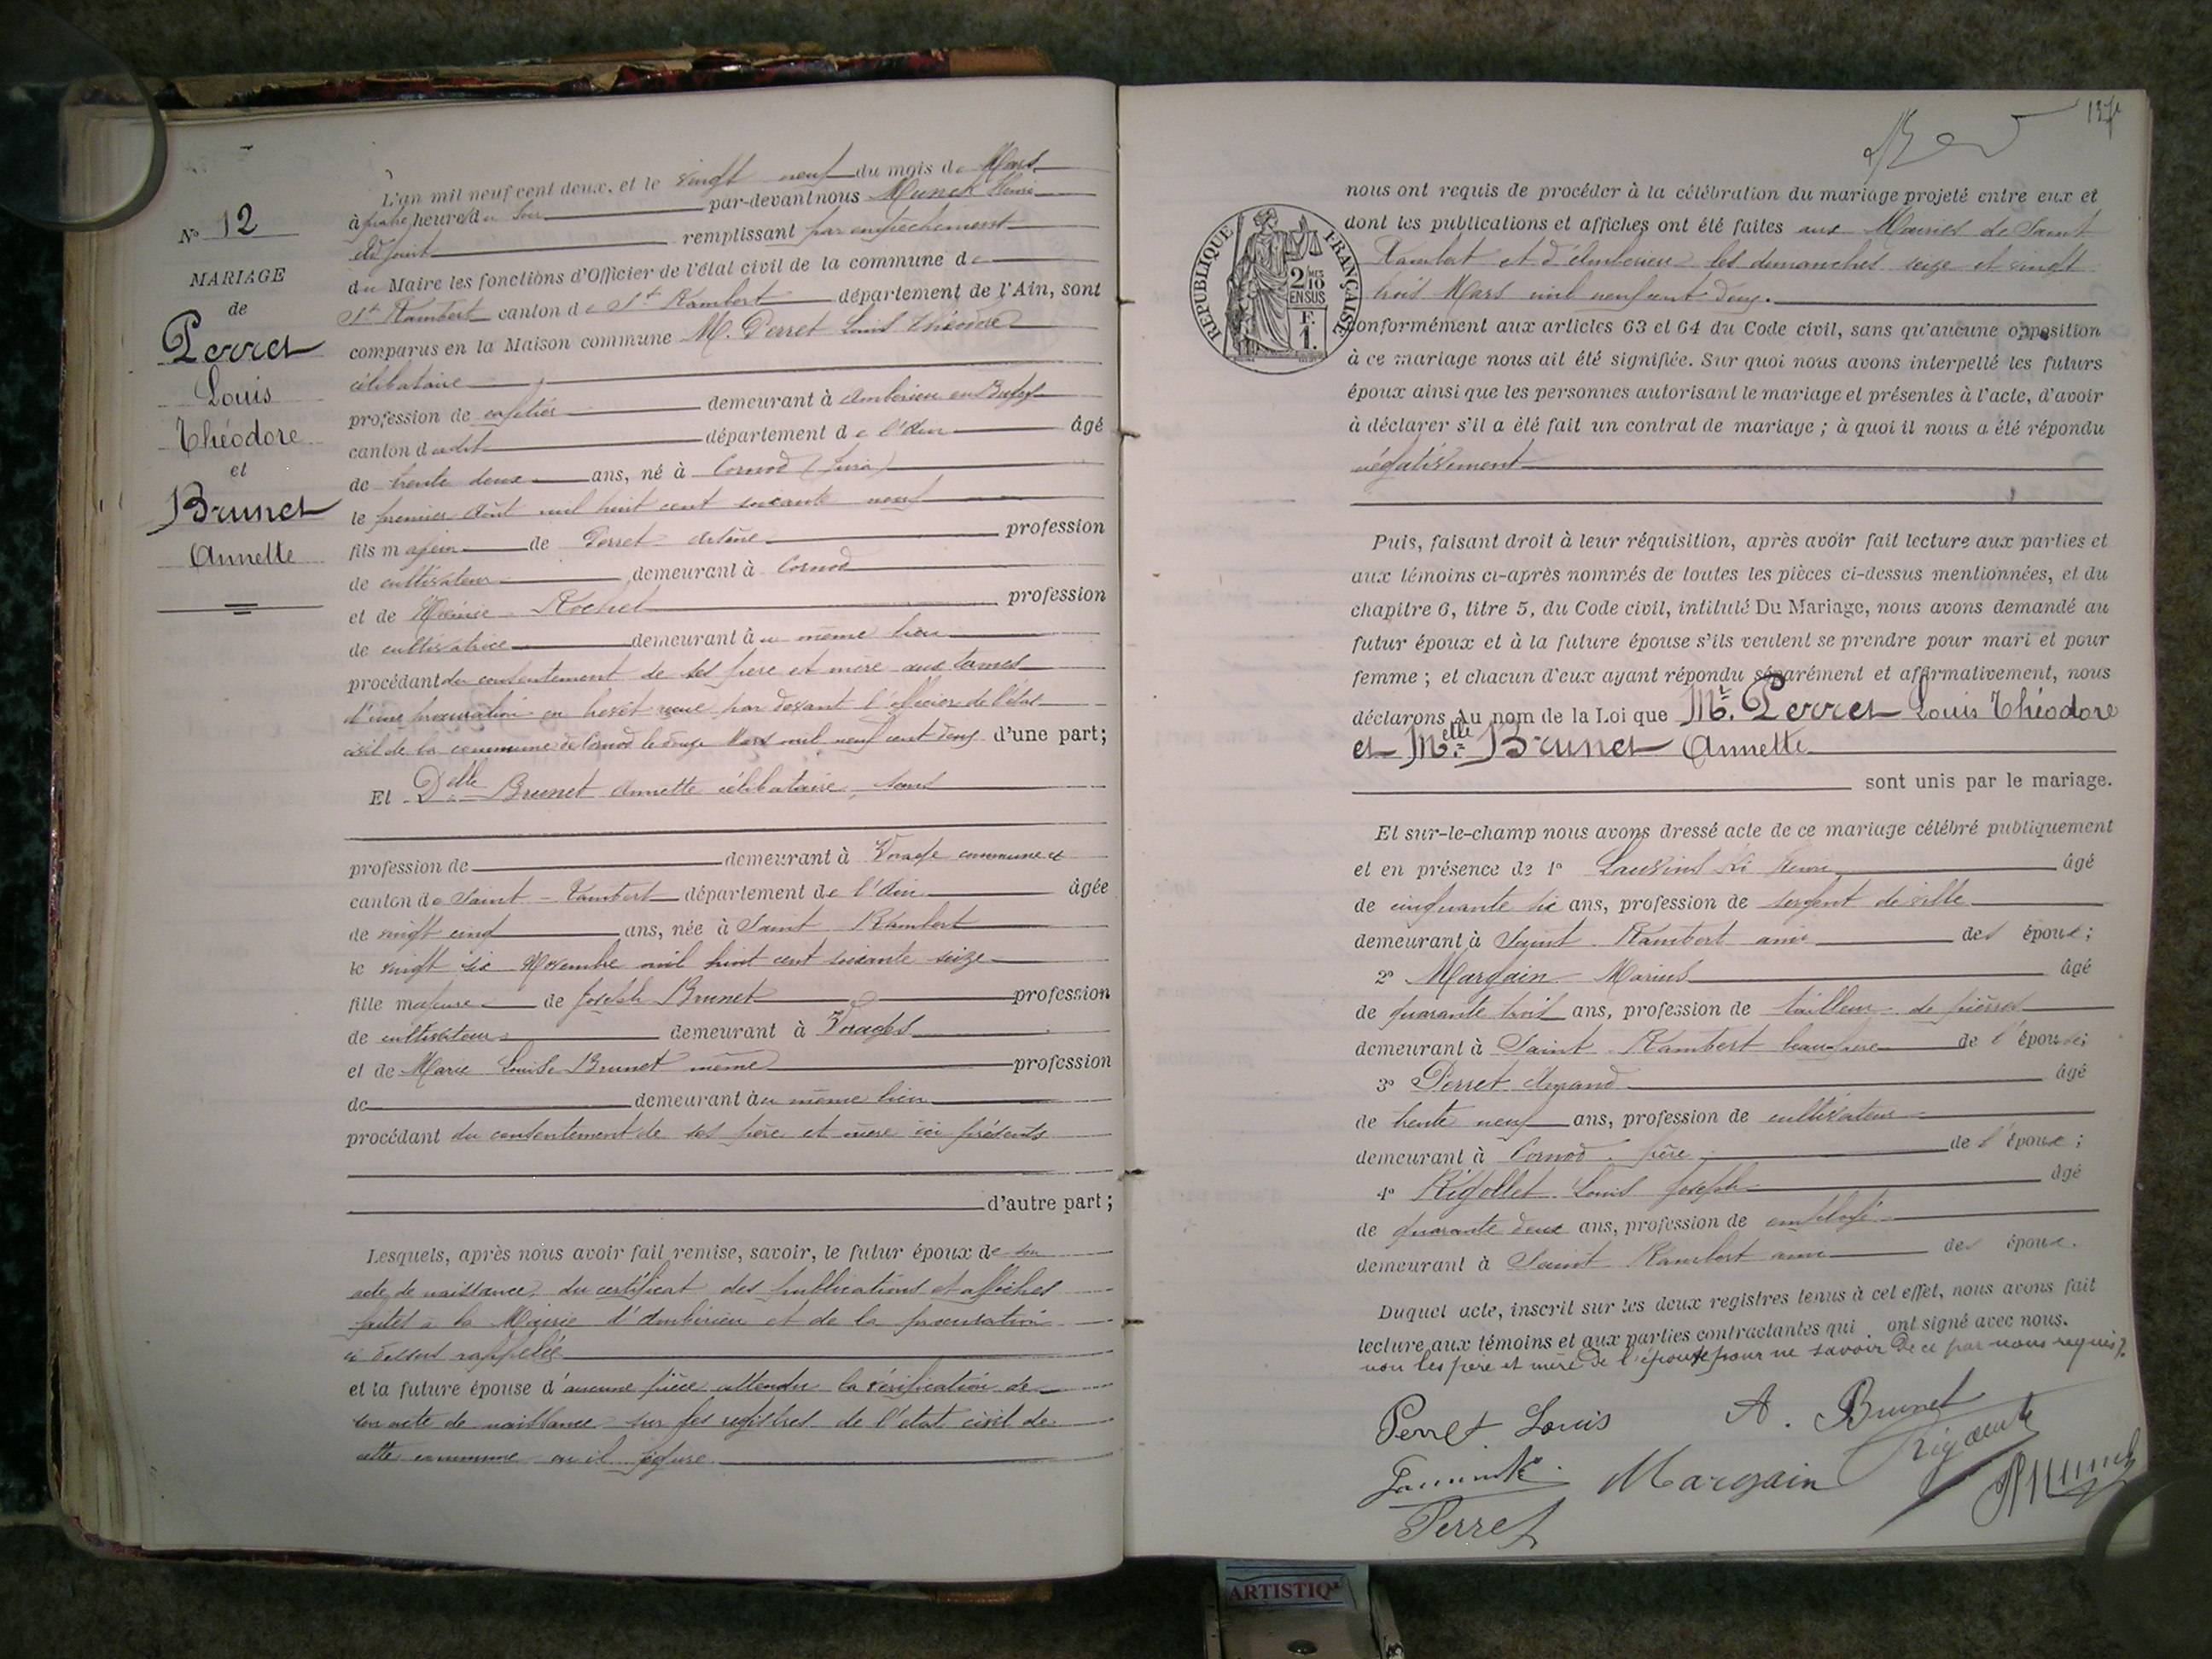 N° 12
MARIAGE
de
Perret
Louis
Théodore
et
Brunet
Annette
L'an mil neuf cent deux, et le vingt neuf du mois de Mars
à quatre heure du soir par-devant nous Munck Henri
adjoint remplissant par empêchement
du Maire les fonctions d'Officier de l'état civil de la commune de
St Rambert canton de St Rambert département de l'Ain, sont
comparus en la Maison commune M. Perret Louis Théodore
célibataire
profession de cafetier demeurant à Ambérieu en Bugey
canton dudit département de l'Ain âgé
de trente deux ans, né à Cornod (Jura)
le premier Août mil huit cent soixante neuf
fils majeur de Perret profession
de cultivateur demeurant à Cornod
et de Rochet profession
de cultivatrice demeurant au même lieu
procédant du consentement de ses père et mère aux termes
d'une procuration en brevet reçue par devant l'officier de l'état
civil de la commune de Cornod le douze Mars mil neuf cent deux d'une part;
Et Delle Brunet Annette célibataire, sans
profession de demeurant à Vorage commune et
canton de Saint-Rambert département de l'Ain âgée
de vingt cinq ans, née à Saint Rambert
le vingt six Novembre mil huit cent soixante seize
fille majeure de Joseph Brunet profession
de cultivateur demeurant à Vorages
et de Marie Louise Brunet même profession
de demeurant au même lieu
procédant du consentement de ses père et mère ici présents
d'autre part;
Lesquels, après nous avoir fait remise, savoir, le futur époux de son
acte de naissance, du certificat des publications et affiches
faites à la Mairie d'Ambérieu et de la procuration
ci dessus rappelée
et la future épouse d'aucune pièce attendu la vérification de
son acte de naissance sur les registres de l'état civil de
cette commune où il figure
137
nous ont requis de procéder à la célébration du mariage projeté entre eux et
dont les publications et affiches ont été faites aux Mairies de Saint
Rambert et d'Ambérieu les dimanches seize et vingt
trois Mars mil neuf cent deux.
RÉPUBLIQUE FRANÇAISE
2/10 EN SUS
F. 1.
conformément aux articles 63 et 64 du Code civil, sans qu'aucune opposition
à ce mariage nous ait été signifiée. Sur quoi nous avons interpellé les futurs
époux ainsi que les personnes autorisant le mariage et présentes à l'acte, d'avoir
à déclarer s'il a été fait un contrat de mariage; à quoi il nous a été répondu
négativement
Puis, faisant droit à leur réquisition, après avoir fait lecture aux parties et
aux témoins ci-après nommés de toutes les pièces ci-dessus mentionnées, et du
chapitre 6, titre 5, du Code civil, intitulé Du Mariage, nous avons demandé au
futur époux et à la future épouse s'ils veulent se prendre pour mari et pour
femme; et chacun d'eux ayant répondu séparément et affirmativement, nous
déclarons au nom de la Loi que Mr. Perret Louis Théodore
et Melle Brunet Annette
sont unis par le mariage.
Et sur-le-champ nous avons dressé acte de ce mariage célébré publiquement
et en présence de 1° Henri âgé
de cinquante six ans, profession de sergent de ville
demeurant à Saint Rambert ami des époux;
2° Margain Marius âgé
de quarante trois ans, profession de tailleur de pierres
demeurant à Saint Rambert beau frère de l'épouse;
3° Perret âgé
de trente neuf ans, profession de cultivateur
demeurant à Cornod. frère de l'époux;
4° Rigollet Louis Joseph âgé
de quarante deux ans, profession de employé
demeurant à Saint Rambert ami des époux.
Duquel acte, inscrit sur les deux registres tenus à cet effet, nous avons fait
lecture aux témoins et aux parties contractantes qui ont signé avec nous.
non les père et mère de l'épouse pour ne savoir de ce par nous requis.
Perret Louis A. Brunet
Margain
Perret
ARTISTIQ